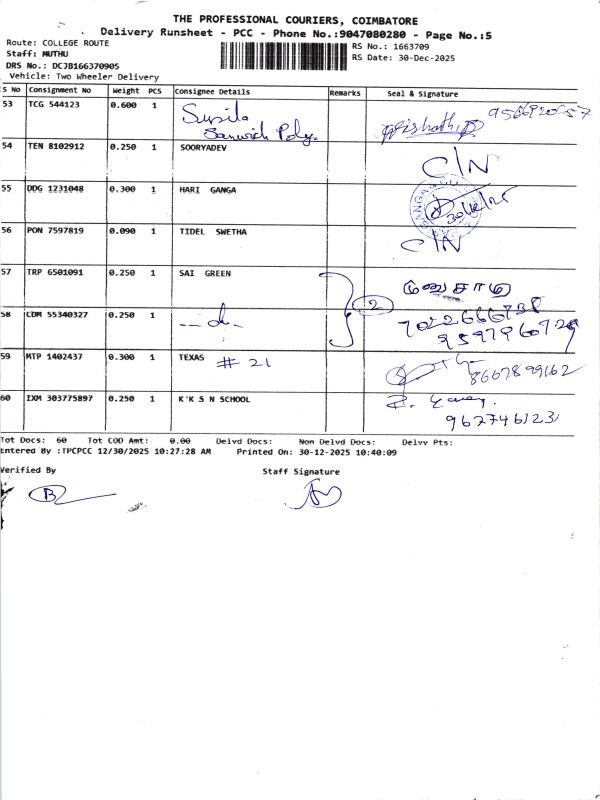 THE PROFESSIONAL COURIERS, COIMBATORE
Delivery Runsheet - PCC - Phone No.:9047080280 - Page No.:5
Route: COLLEGE ROUTE
RS No.: 1663709
Staff: MUTHU
RS Date: 30-Dec-2025
DRS No.: DCJB166370905
Vehicle: Two Wheeler Delivery
S No Consignment No Weight PCS Consignee Details Remarks Seal & Signature
53 TCG 544123 0.600 1
54 TEN 8102912 0.250 1 SOORYADEV C/N
55 DDG 1231048 0.300 1 HARI GANGA
56 PON 7597819 0.090 1 TIDEL SWETHA C/N
57 TRP 6501091 0.250 1 SAI GREEN முனுசாமி
58 CDM 55340327 0.250 1 --do- 2
59 MTP 1402437 0.300 1 TEXAS # 21 8667899162
60 IXM 303775897 0.250 1 K'K S N SCHOOL
Tot Docs: 60 Tot COD Amt: 0.00 Delvd Docs: Non Delvd Docs: Delvv Pts:
Entered By :TPCPCC 12/30/2025 10:27:28 AM Printed On: 30-12-2025 10:40:09
Verified By Staff Signature